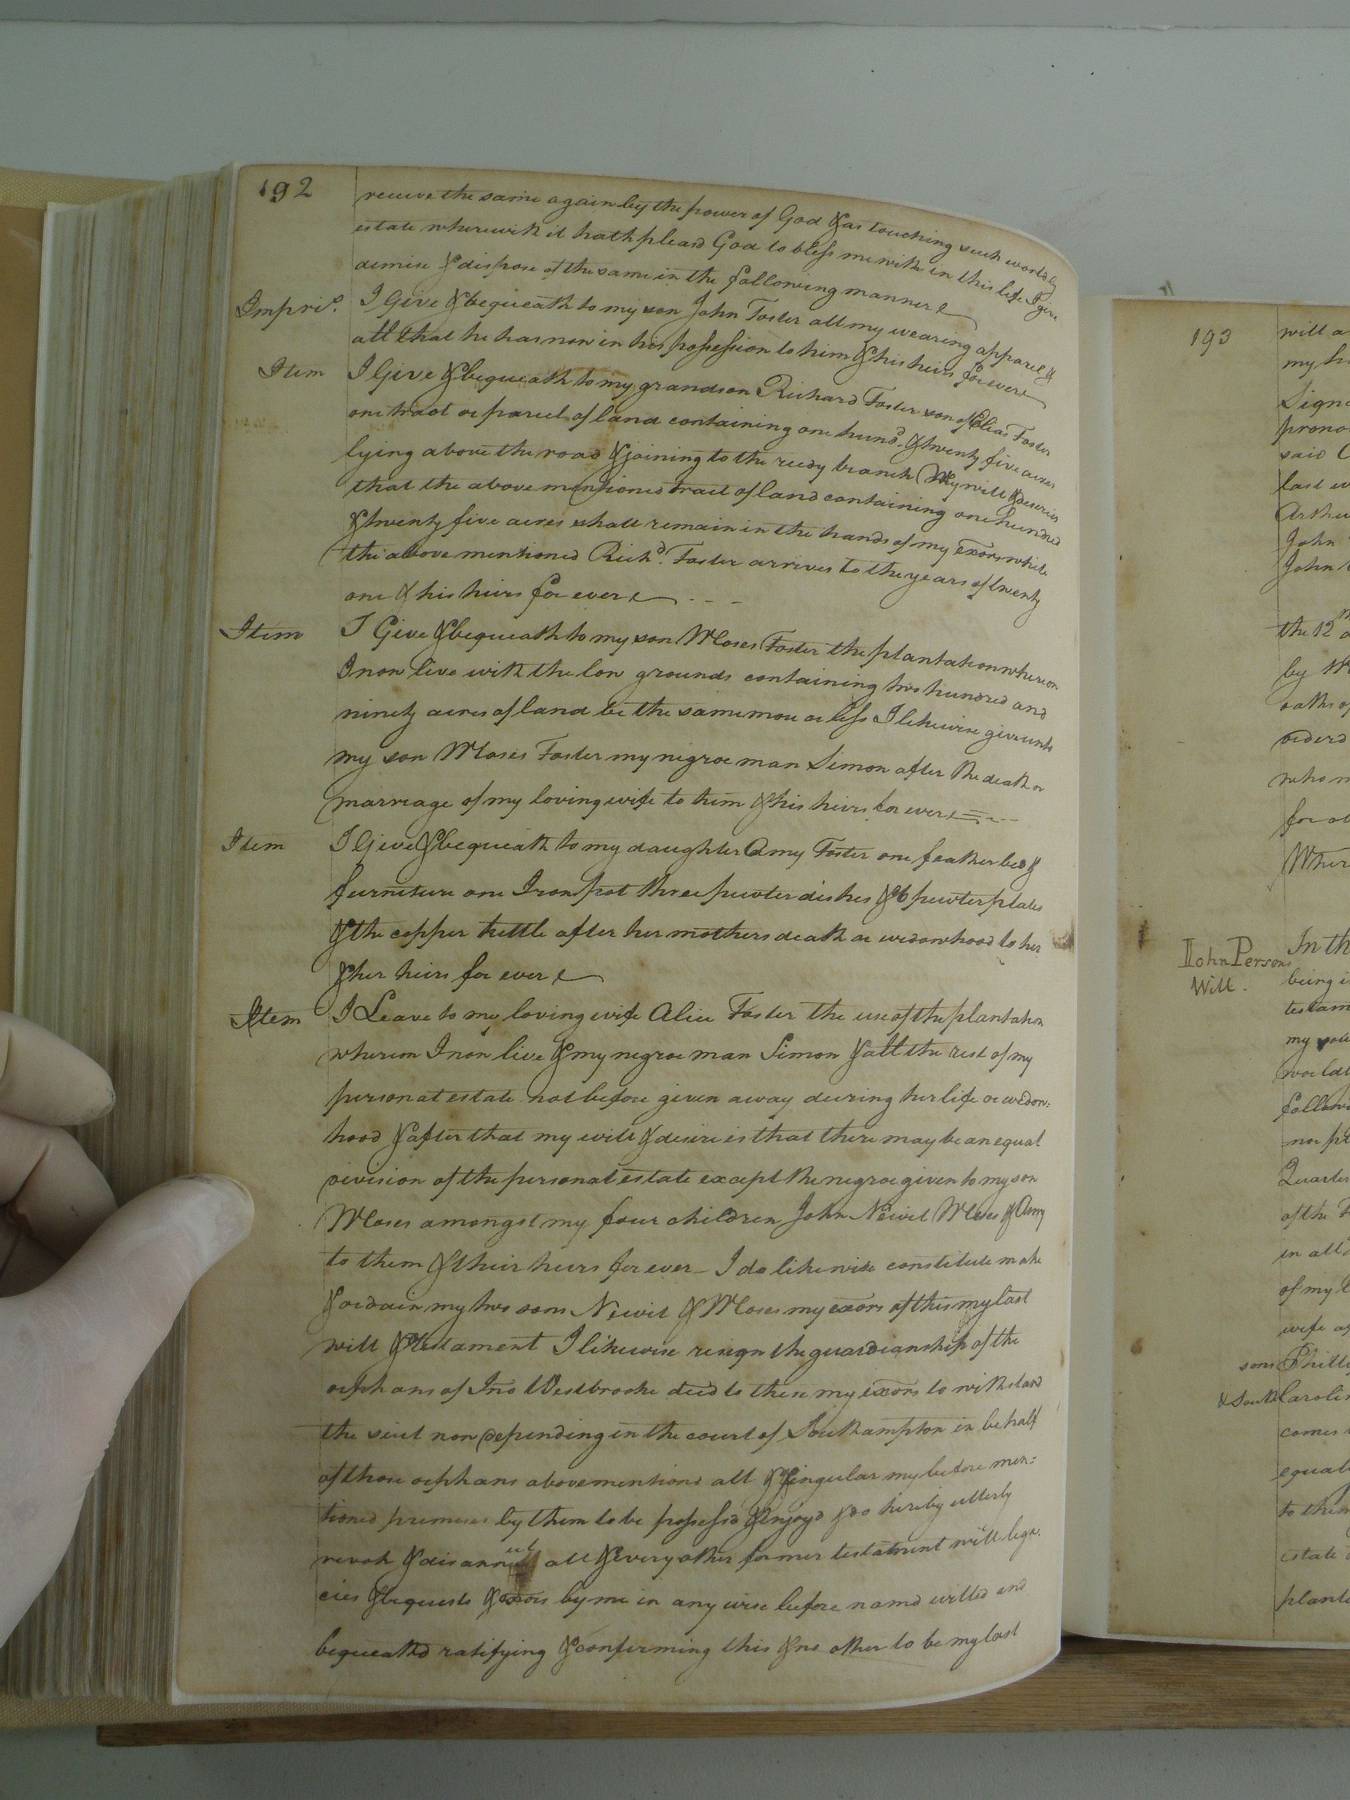 192
receive the same again by the power of God & as touching such worldly
estate wherewith it hath pleasd God to bless me with in this life I give
demise & dispose of the same in the following manner
Impris. I Give & bequeath to my son John Foster all my wearing apparel &
all that he has now in his possession to him & his heirs for ever
Item I Give & bequeath to my grandson Richard Foster son of Elias Foster
one tract or parcel of land containing one hund. & twenty five acres
lying above the road & joining to the reedy branch My will & desire is
that the above mentioned tract of land containing one hundred
& twenty five acres shall remain in the hands of my Exors while
the above mentioned Richd. Foster arrives to the years of twenty
one & his heirs for ever
Item I Give & bequeath to my son Moses Foster the plantation whereon
I now live with the low grounds containing two hundred and
ninety acres of land be the same more or less I likewise give unto
my son Moses Foster my negroe man Simon after the death or
marriage of my loving wife to him & his heirs for ever
Item I Give & bequeath to my daughter Amy Foster one feather bed &
furniture one Iron pot three pewter dishes & 6 pewter plates
& the copper kettle after her mothers death or widowhood to her
& her heirs for ever
Item I Leave to my loving wife Alice Foster the use of the plantation
whereon I now live & my negroe man Simon & all the rest of my
personal estate not before given away during her life or widow:
hood & after that my will & desire is that there may be an equal
division of the personal estate except the negroe given to my son
Moses amongst my four children John Newit Moses & Amy
to them & their heirs for ever - I do likewise constitute make
& ordain my two sons Newit & Moses my exors of this my last
will & testament I likewise resign the guardianship of the
orphans of Jno Westbrooke decd to these my exors to withstand
the suit now depending in the court of Southampton in behalf
of those orphans above mentiond all & singular my before men:
tioned premises by them to be possessd & enjoyd & do hereby utterly
revok & disannul all & every other former testament will lega:
cies & bequests & exors by me in any wise before namd willed and
bequeathd ratifying & confirming this & no other to be my last
193
will a
my h
Signe
prono
said
last w
Arthu
John
John
the 12
by
oaths of
orderd
who m
for ob
When
John Persons
Will.
In th
being i
testam
my
world
follow
Quarter
of the
in all
of my
wife
sons Philli
& South Carolin
comes
equal
to them
estate
plant